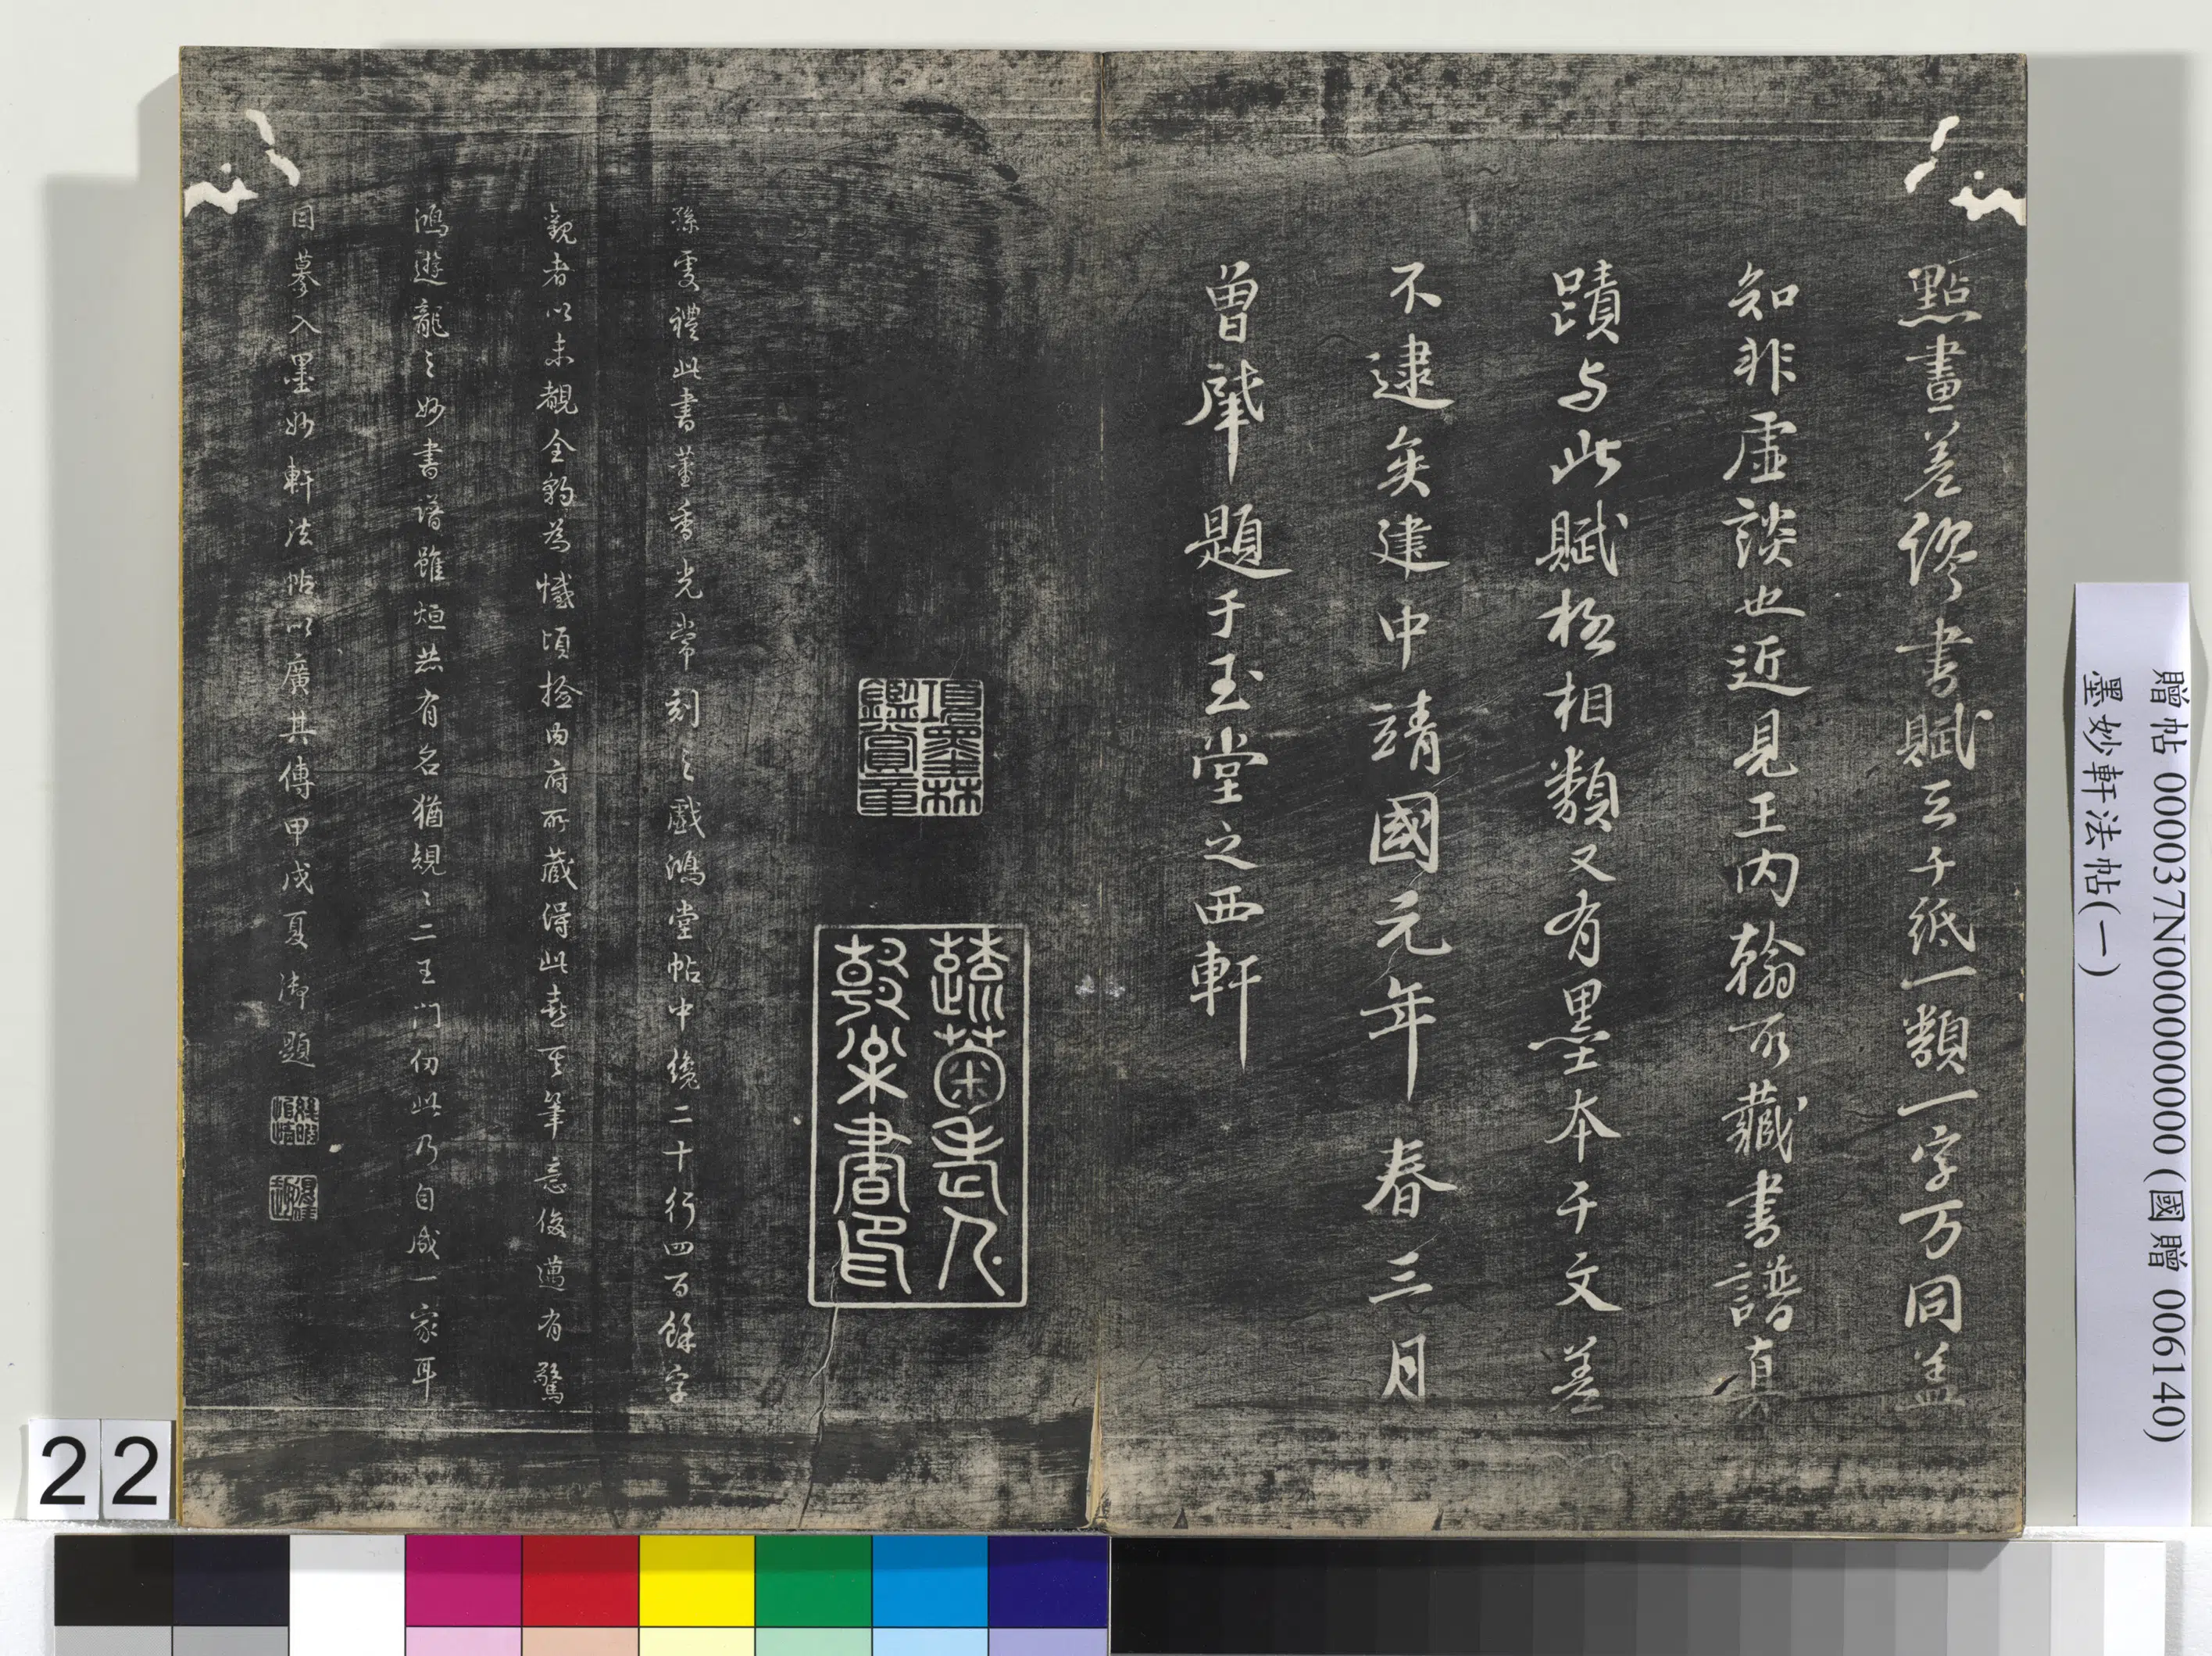 點畫差繆書賦三千紙一類一字万同盖
知非虛談也近見王內翰所藏書譜真
蹟与此賦極相類又有墨本千文差
不逮矣建中靖國元年春三月
曾肇題于玉堂之西軒
項墨林
鑑賞章
蔬菊老人
敦樂書印
孫虔禮此書董香光常刻之戲鴻堂帖中纔二十行四百餘字
觀者以未覩全豹為憾頃撿內府所藏得此卷其筆意俊邁有驚
鴻遊龍之妙書譜雖烜赫有名猶規之二王門仞此乃自成一家耳
因摹入墨妙軒法帖以廣其傳甲戌夏御題
贈帖 000037N000000000 (國贈 006140)
墨妙軒法帖(一)
22